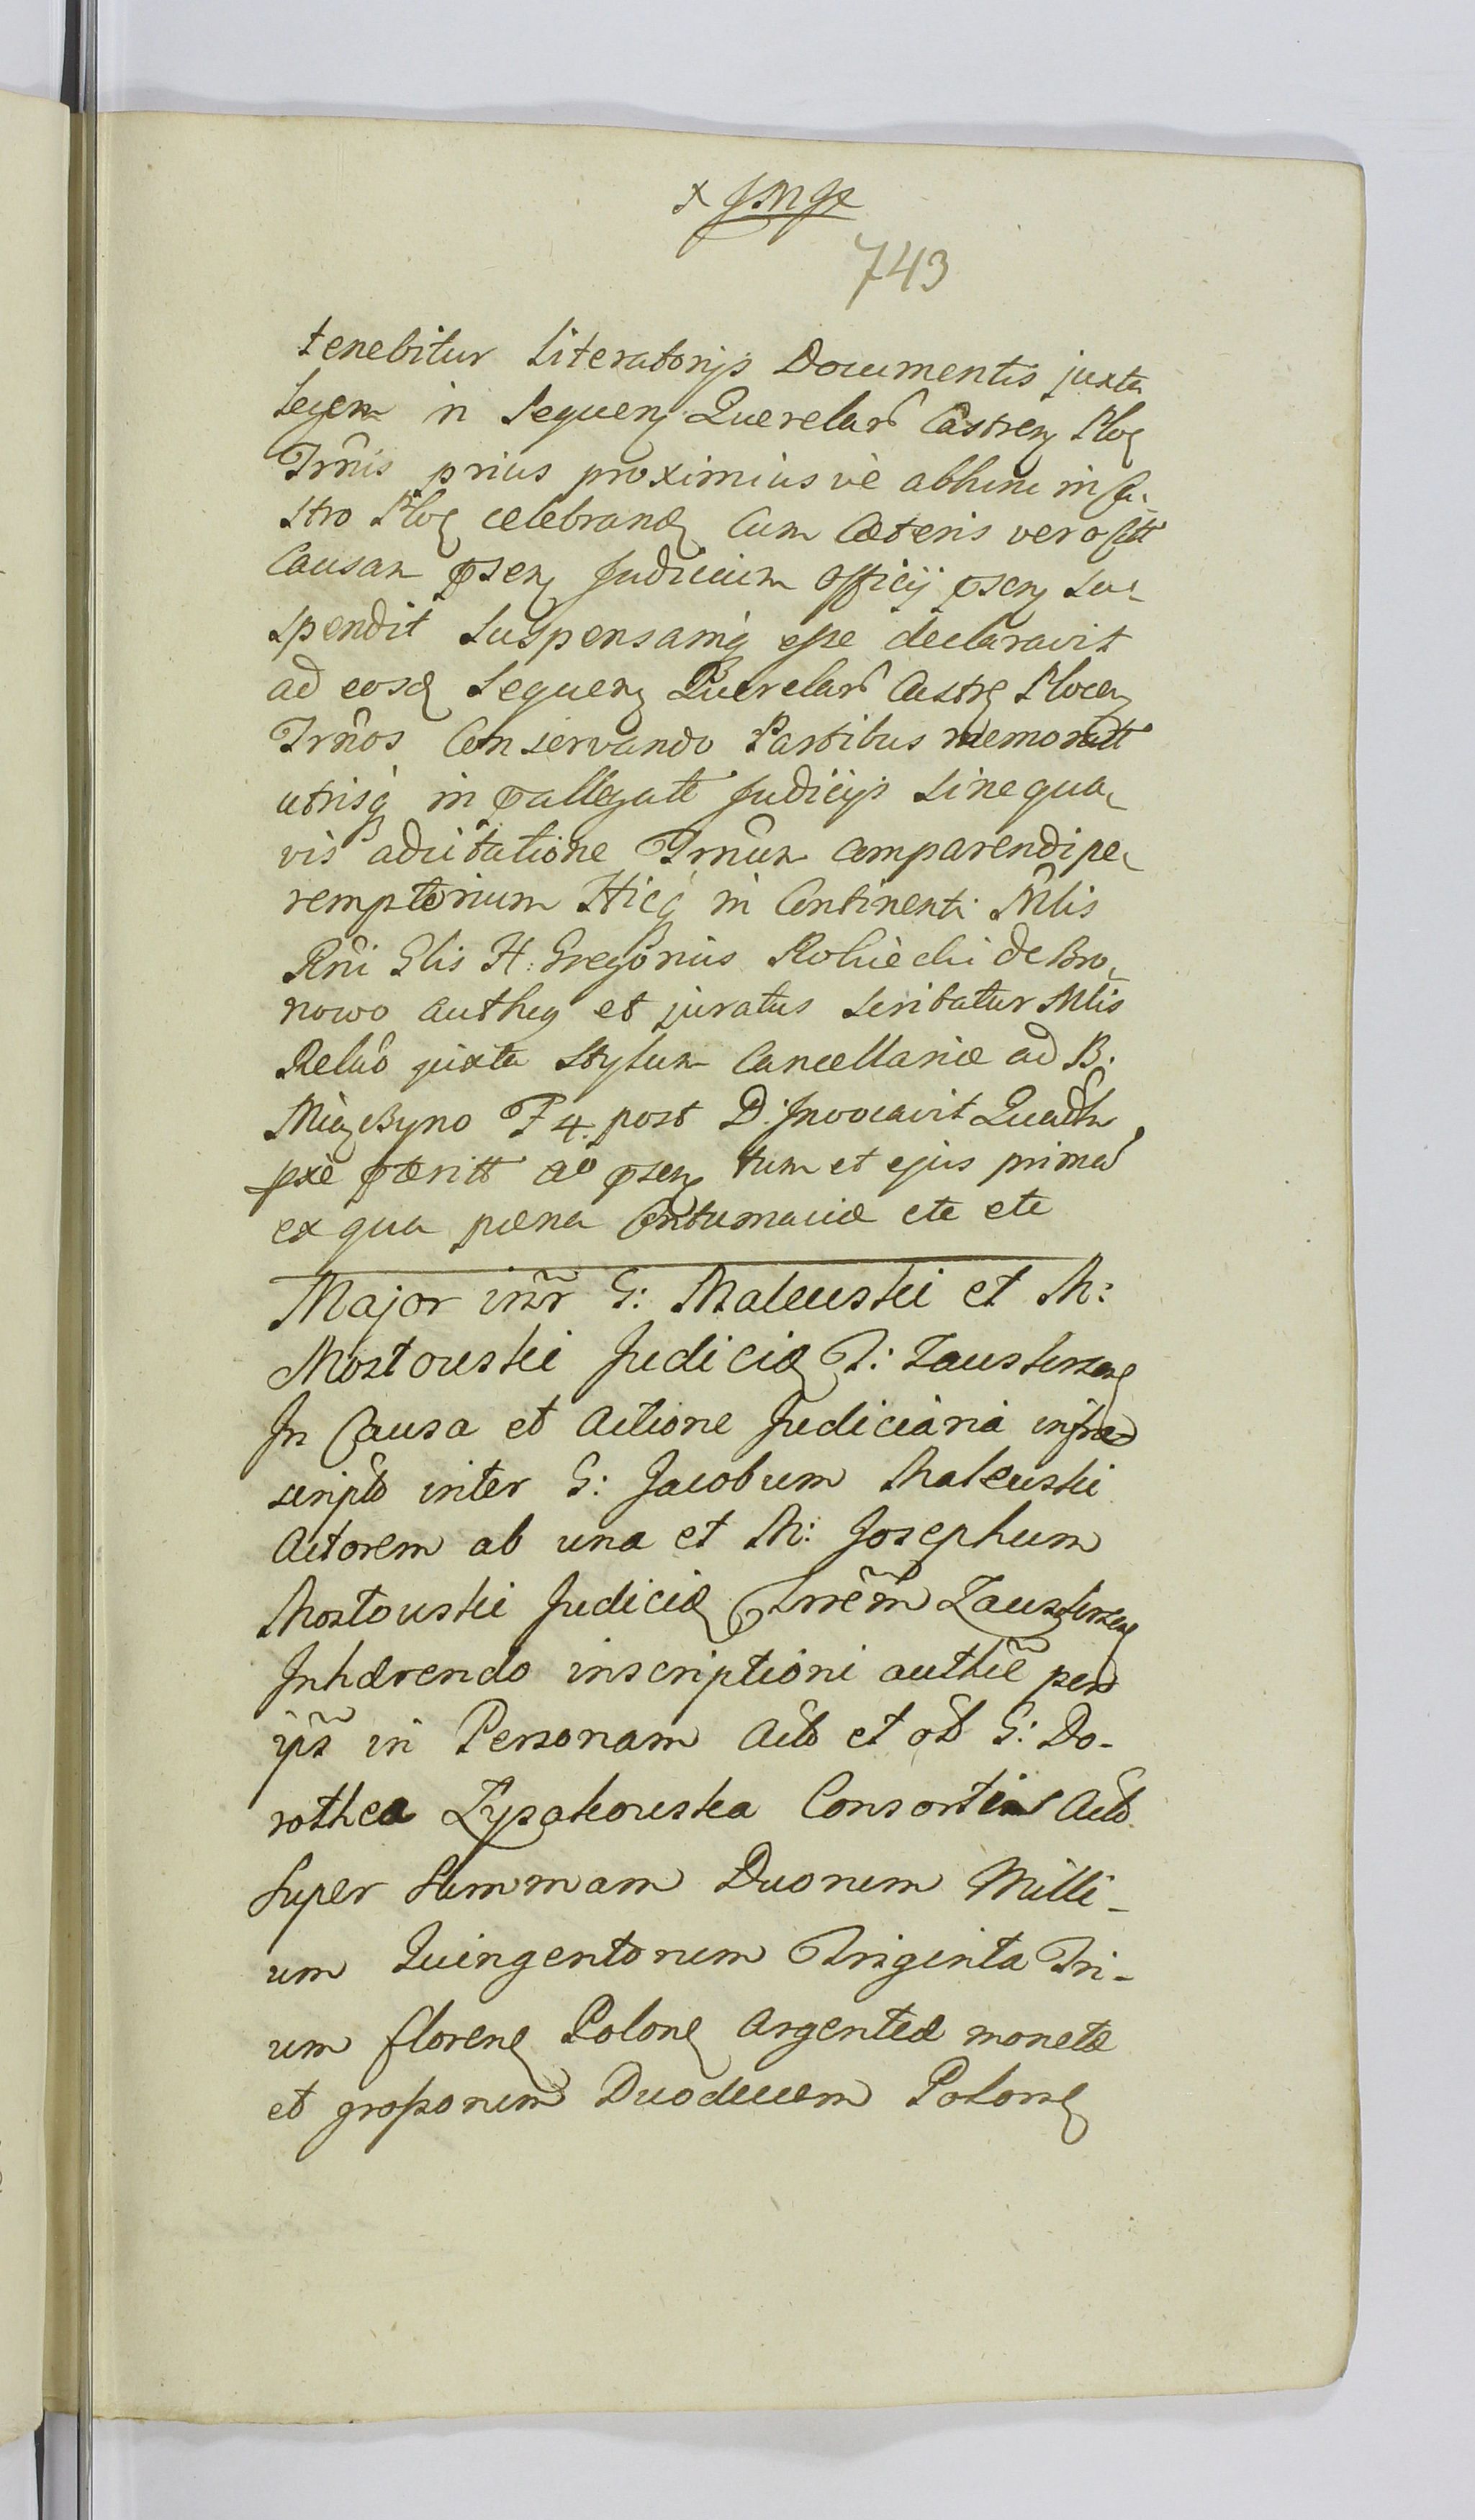 743
tenebitur Literatorijs Documentis juxta
Legem in Sequenz Querelarũ Castrenz Ploc
Trñis prius proximius vè abhinc in Ca-
stro Ploc celebrand Cum Cæteris vero
Causam psenz Judicium officij psenz su-
spendit suspensamq esse declaravit
ad eosd Sequenz Querelarũ Castr Plocenz
Trños Conservando Partibus memoratt
utrisq in pallegatt Judicijs sine qua-
vis adcitatione Trñum comparendi pe-
remptorium Hicq in Continenti Mlis
Rñi Glis H: Gregorius Rościechi de Bro-
nowo authen et juratus scribatur Mlis
juxta Stylum Cancellariæ ad B.
F 4. post D. Invocavit Quad
pxe pteritt ad psenz tum et ejus prima
ex qua pæna Contumaciæ etc etc
Major inr̃ G: Maleuski et M:
Mostouski Judicid T: Zauskrzen
In Causa et Actione Judiciaria infra
scripta inter G: Jacobum Maleuski
Actorem ab una et M: Josephum
Mostouski Judicid Trrẽm Zauskrzen
Inhærendo inscriptioni authẽ per
ips̃ in Personam Act et G: Do-
rothea Lysakouska Consortis Act
Super Summam Duorum Milli-
um Quingentorum Triginta Tri-
um floren Polon argenteæ monetæ
et grossorum Duodecem Polon